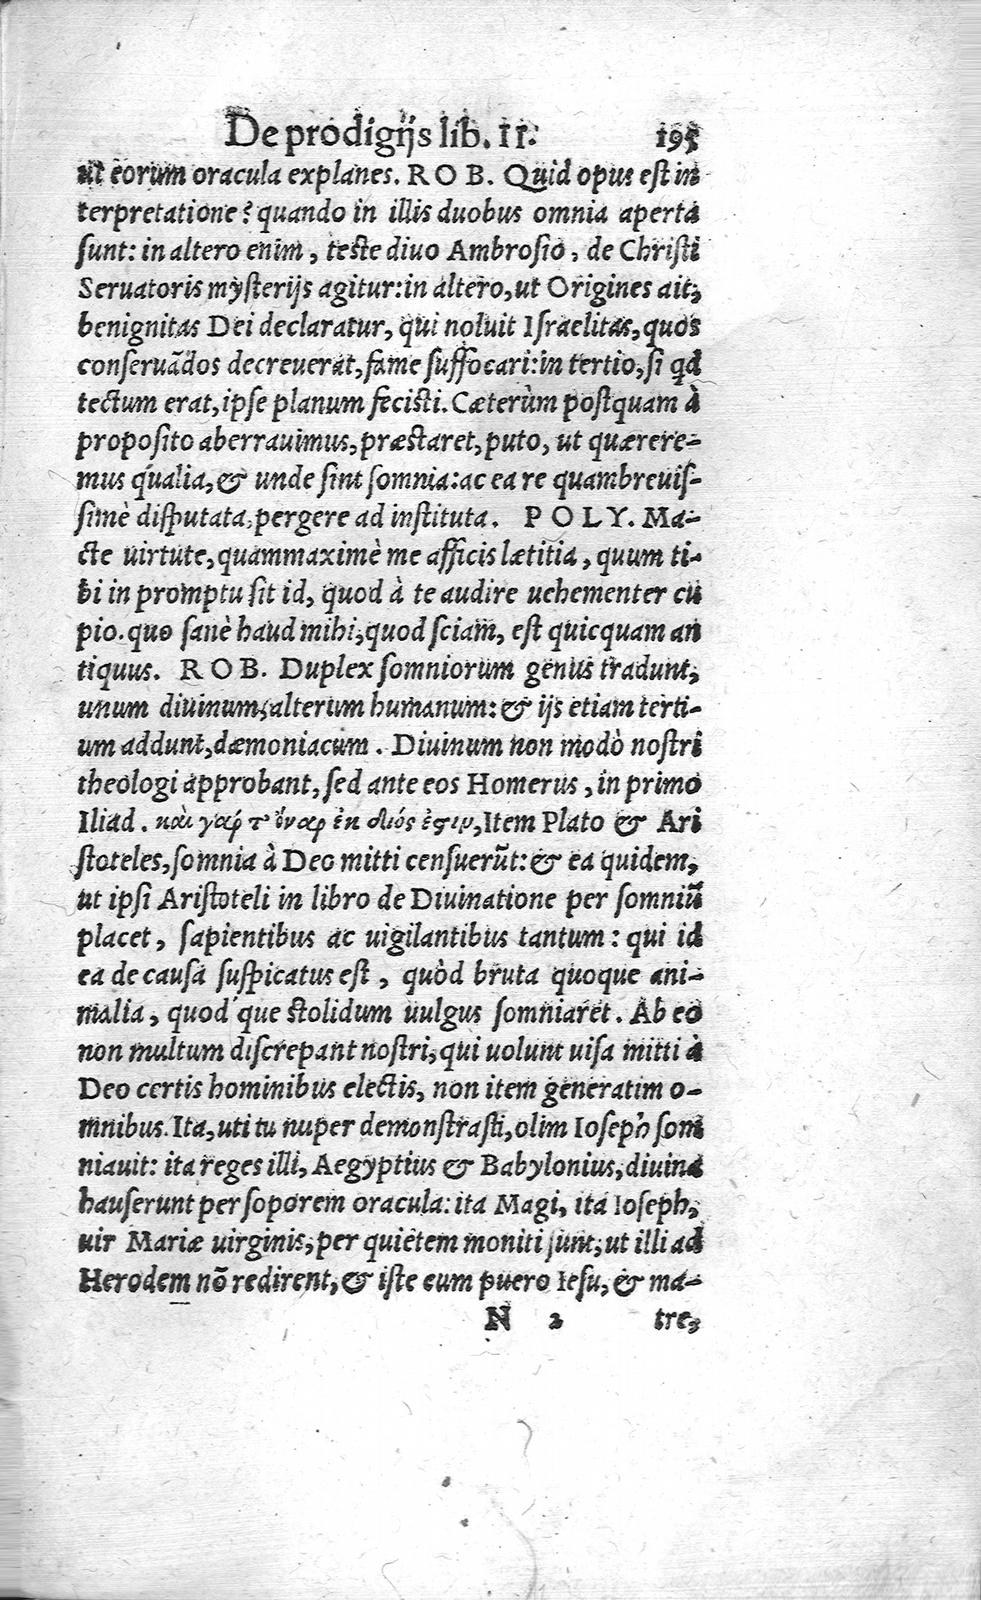 De prodigijs lib. II. 195
ut eorum oracula explanes. ROB. Quid opus est in
terpretatione? quando in illis duobus omnia aperta
sunt: in altero enim, teste diuo Ambrosio, de Christi
Seruatoris mysterijs agitur: in altero, ut Origines ait,
benignitas Dei declaratur, qui noluit Israelitas, quos
conseruãdos decreuerat, fame suffocari: in tertio, si qd
tectum erat, ipse planum fecisti. Cæterùm postquam à
proposito aberrauimus, præstaret, puto, ut quærere-
mus qualia, & unde sint somnia: ac ea re quambreuis-
simè disputata, pergere ad instituta. POLY. Ma-
cte uirtute, quammaximè me afficis lætitia, quum ti-
bi in promptu sit id, quod à te audire uehementer cu
pio. quo sanè haud mihi, quod sciam, est quicquam an
tiquus. ROB. Duplex somniorum genus tradunt,
unum diuinum, alterum humanum: & ijs etiam terti-
um addunt, dæmoniacum. Diuinum non modò nostri
theologi approbant, sed ante eos Homerus, in primo
Iliad. καὶ γάρ τ᾽ ὄναρ ἐκ διός ἐστιν, Item Plato & Ari
stoteles, somnia à Deo mitti censuerũt: & ea quidem,
ut ipsi Aristoteli in libro de Diuinatione per somniũ
placet, sapientibus ac uigilantibus tantum: qui id
ea de causa suspicatus est, quòd bruta quoque ani-
malia, quod que stolidum uulgus somniaret. Ab eo
non multum discrepant nostri, qui uolunt uisa mitti à
Deo certis hominibus electis, non item generatim o-
mnibus. Ita, uti tu nuper demonstrasti, olim Ioseph som
niauit: ita reges illi, Aegyptius & Babylonius, diuina
hauserunt per soporem oracula: ita Magi, ita Ioseph,
uir Mariæ uirginis, per quietem moniti sunt, ut illi ad
Herodem nõ redirent, & iste cum puero Iesu, & ma-
N 2 tre,